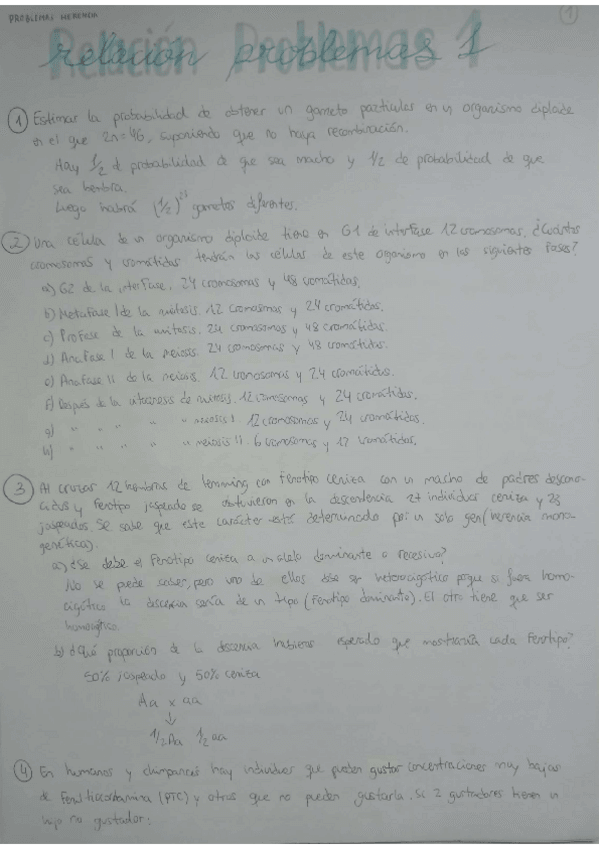 PROBLEMAS HERENCIA
1
relación problemas 1
Relación Problemas 1
1 Estimar la probabilidad de obtener un gameto particular en un organismo diploide
en el que 2n=46, suponiendo que no haya recombinación.
Hay 1/2 de probabilidad de que sea macho y 1/2 de probabilidad de que
sea hembra.
Luego habrá (1/2)²³ gametos diferentes.
2 Una célula de un organismo diploide tiene en G1 de interfase 12 cromosomas. ¿Cuántos
cromosomas y cromátidas tendrán las células de este organismo en las siguientes fases?
a) G2 de la interfase. 24 cromosomas y 48 cromátidas.
b) Metafase I de la mitosis. 12 cromosomas y 24 cromátidas.
c) Profase de la mitosis. 24 cromosomas y 48 cromátidas.
d) Anafase I de la meiosis. 24 cromosomas y 48 cromátidas.
e) Anafase II de la meiosis. 12 cromosomas y 24 cromátidas.
f) Después de la citocinesis de mitosis. 12 cromosomas y 24 cromátidas.
g) " " " " " meiosis I. 12 cromosomas y 24 cromátidas.
h) " " " " " meiosis II. 6 cromosomas y 12 cromátidas.
3 Al cruzar 12 hembras de lemming con fenotipo ceniza con un macho de padres descono-
cidos y fenotipo jaspeado se obtuvieron en la descendencia 27 individuos ceniza y 23
jaspeados. Se sabe que este carácter está determinado por un solo gen (herencia mono-
genética).
a) ¿Se debe el fenotipo ceniza a un alelo dominante o recesivo?
No se puede saber, pero uno de ellos debe ser heterocigótico porque si fuera homo-
cigótico la descencia sería de un tipo (fenotipo dominante). El otro tiene que ser
homocigótico.
b) ¿Qué proporción de la descencia hubieras esperado que mostraría cada fenotipo?
50% jaspeado y 50% ceniza
Aa x aa
↓
1/2 Aa 1/2 aa
4 En humanos y chimpancés hay individuos que pueden gustar concentraciones muy bajas
de (PTC) y otros que no pueden gustarla. Si 2 gustadores tienen un
hijo no gustador: